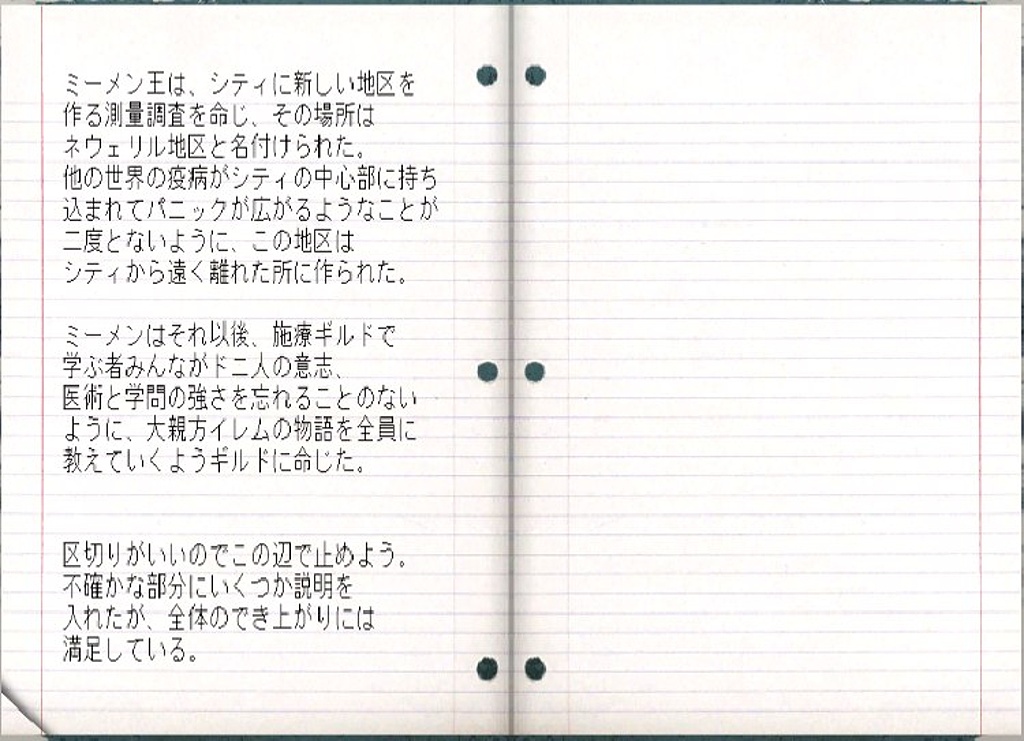 ミーメン王は、シティに新しい地区を
作る測量調査を命じ、その場所は
ネウェリル地区と名付けられた。
他の世界の疫病がシティの中心部に持ち
込まれてパニックが広がるようなことが
二度とないように、この地区は
シティから遠く離れた所に作られた。
ミーメンはそれ以後、施療ギルドで
学ぶ者みんながドニ人の意志、
医術と学問の強さを忘れることのない
ように、大親方イレムの物語を全員に
教えていくようギルドに命じた。
区切りがいいのでこの辺で止めよう。
不確かな部分にいくつか説明を
入れたが、全体のでき上がりには
満足している。